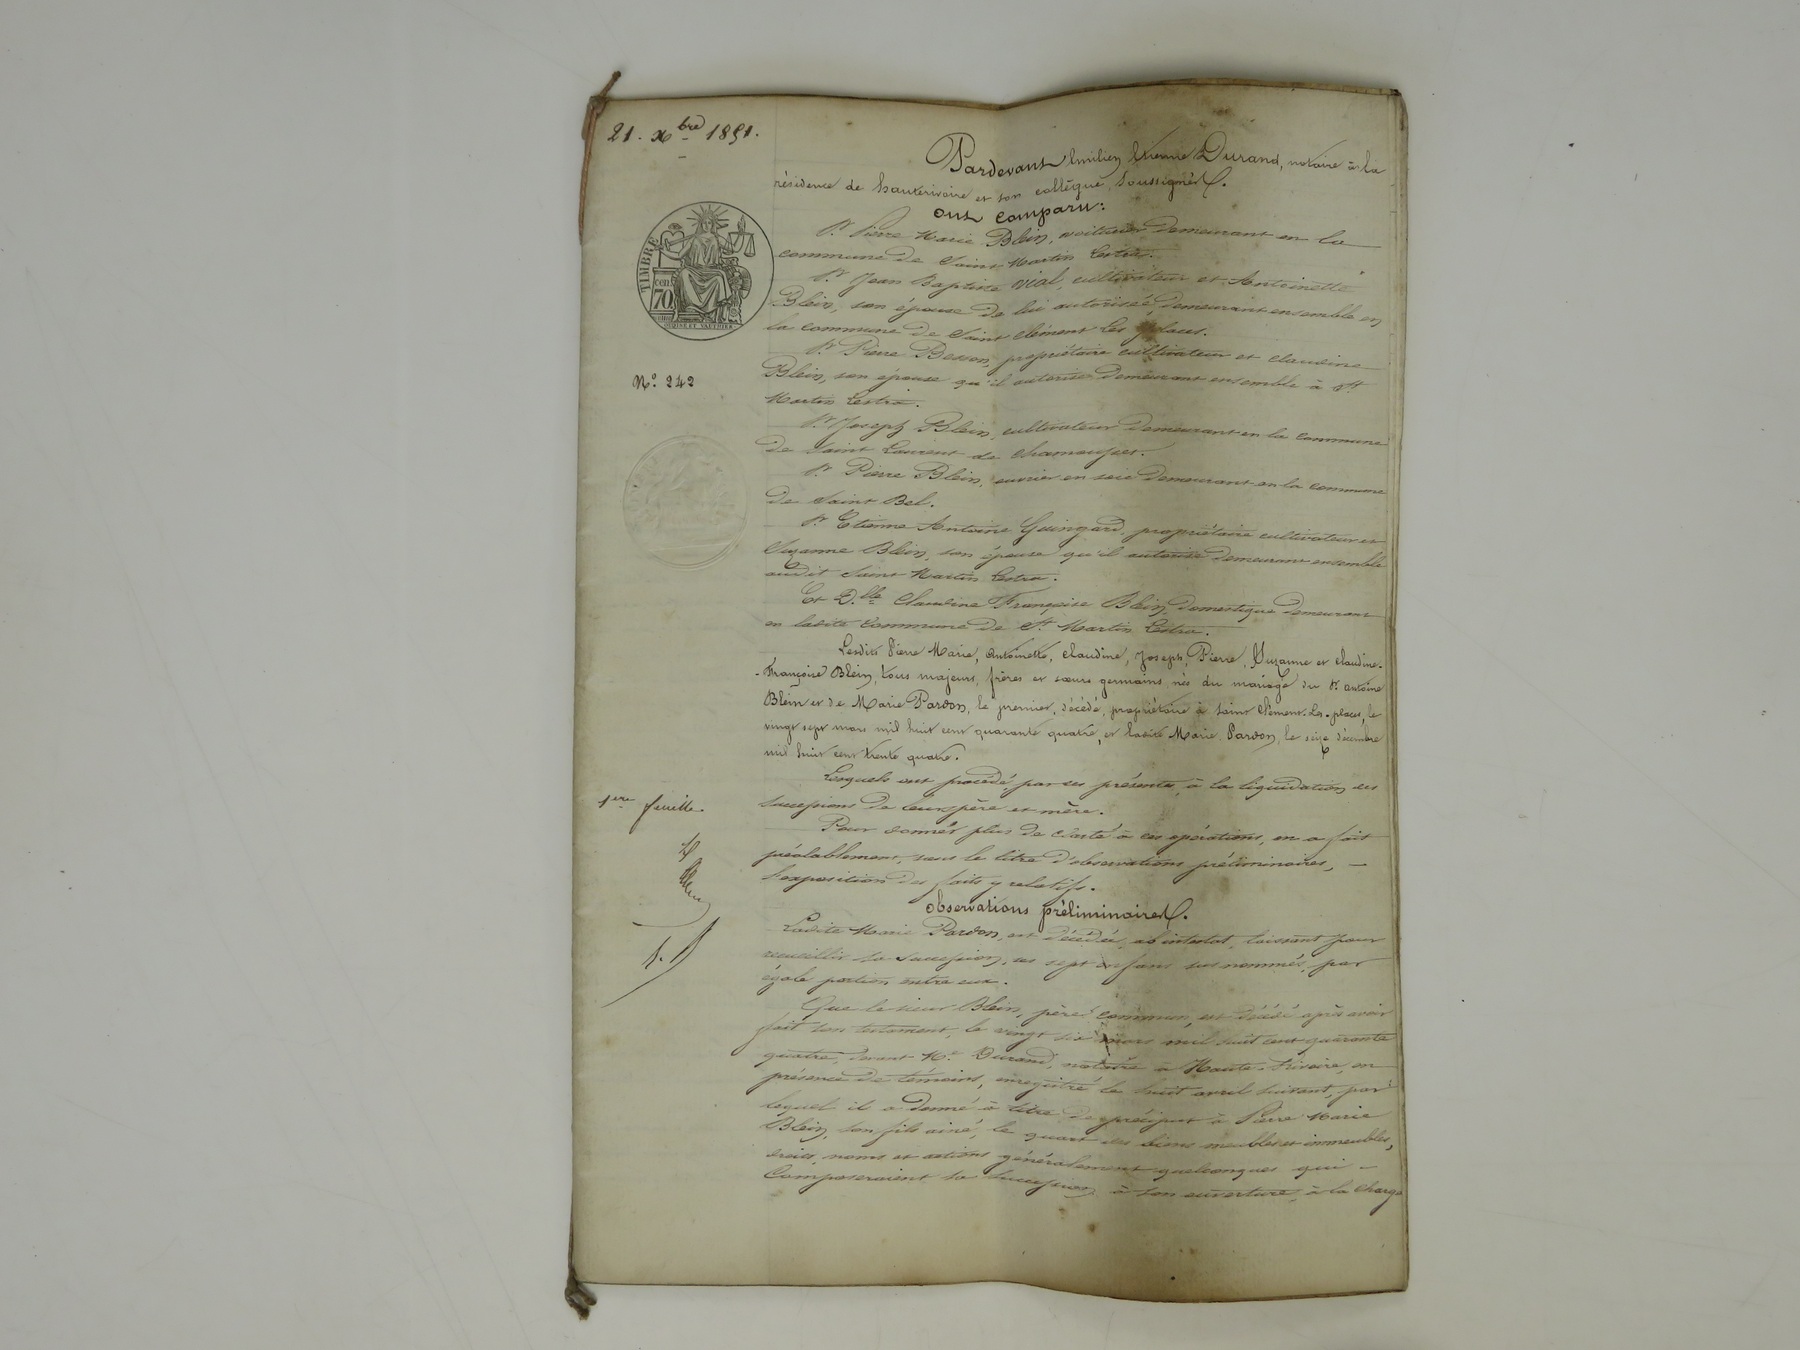 21. Xbre 1851.
Pardevant Emilien Etienne Durand, notaire à la
résidence de hauterivoire et son collègue, soussignés.
ont comparu:
Sr. Pierre Marie Blein, voiturier demeurant en la
commune de Saint Martin Lestra.
Sr. Jean Baptiste Vial, cultivateur et Antoinette
Blein, son épouse de lui autorisée, demeurant ensemble en
la commune de Saint Clément les places.
Sr. Pierre Besson, propriétaire cultivateur et claudine
Blein, son épouse qu'il autorise demeurant ensemble à St.
Martin Lestra.
Sr. Joseph Blein, cultivateur demeurant en la commune
de Saint Laurent de Chamousset.
Sr. Pierre Blein, ouvrier en soie demeurant en la commune
de Saint Bel.
Sr. Etienne Antoine Guingard, propriétaire cultivateur et
Suzanne Blein, son épouse qu'il autorise demeurant ensemble
audit Saint Martin Lestra.
Et Dlle. Claudine Françoise Blein, domestique demeurant
en ladite commune de St. Martin Lestra.
Lesdits Pierre Marie, Antoinette, Claudine, Joseph, Pierre, Suzanne et Claudine-
-Françoise Blein, tous majeurs, frères et sœurs germains, nés du mariage du Sr. antoine
Blein et de Marie Pardon, le premier, décédé, propriétaire à Saint Clément-les-places, le
vingt sept mars mil huit cent quarante quatre, et ladite Marie Pardon, le seize décembre
mil huit cent trente quatre.
Lesquels ont procédé, par ces présentes, à la liquidation des
successions de leurs père et mère.
Pour donner plus de clarté à ces opérations, on a fait
préalablement, sous le titre d'observations préliminaires, —
l'exposition des faits y relatifs.
observations préliminaires.
Ladite Marie Pardon, est décédée, ab intestat, laissant pour
recueillir sa succession, ses sept enfans sus nommés, par
égale portion entre eux.
Que le sieur Blein, père commun, est décédé après avoir
fait son testament, le vingt six mars mil huit cent quarante
quatre, devant Me. Durand, notaire à Haute-rivoire, en
présence de témoins, enregistré le huit avril suivant, par
lequel il a donné à titre de préciput à Pierre Marie
Blein, son fils ainé, le quart des biens meubles et immeubles,
droits, noms et actions généralement quelconques qui —
Composeraient sa succession à son ouverture, à la charge
TIMBRE
cen.
70
No. 242
1ere feuille.